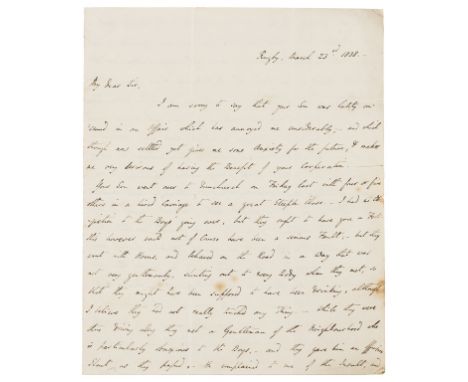 Rugby, March 23rd 1838.
My Dear Sir,
I am sorry to say that your Son was lately en-
gaged in an Affair which has annoyed me considerably, and which
though now settled yet gives me some Anxiety for the future, & makes
me very desirous of having the Benefit of your Cooperation.
Your Son went over to Dunchurch on Friday last with four or five
others in a hired Carriage to see a great Steeple Chase. I had no Op-
position to the Boys going over, but they ought to have gone a Foot
this however would not of Course have been a serious Fault; but they
went with Horns, and behaved on the Road in a Way that was
not very gentlemanly, shouting out to every body whom they met, so
that they might have been supposed to have been drinking, although
I believe they had not really touched any Thing. While they were
thus driving along they met a Gentleman of the Neighbourhood who
is particularly to the Boys, and they gave him an offensive
Shout, as they passed. He complained to me of the Insult, and